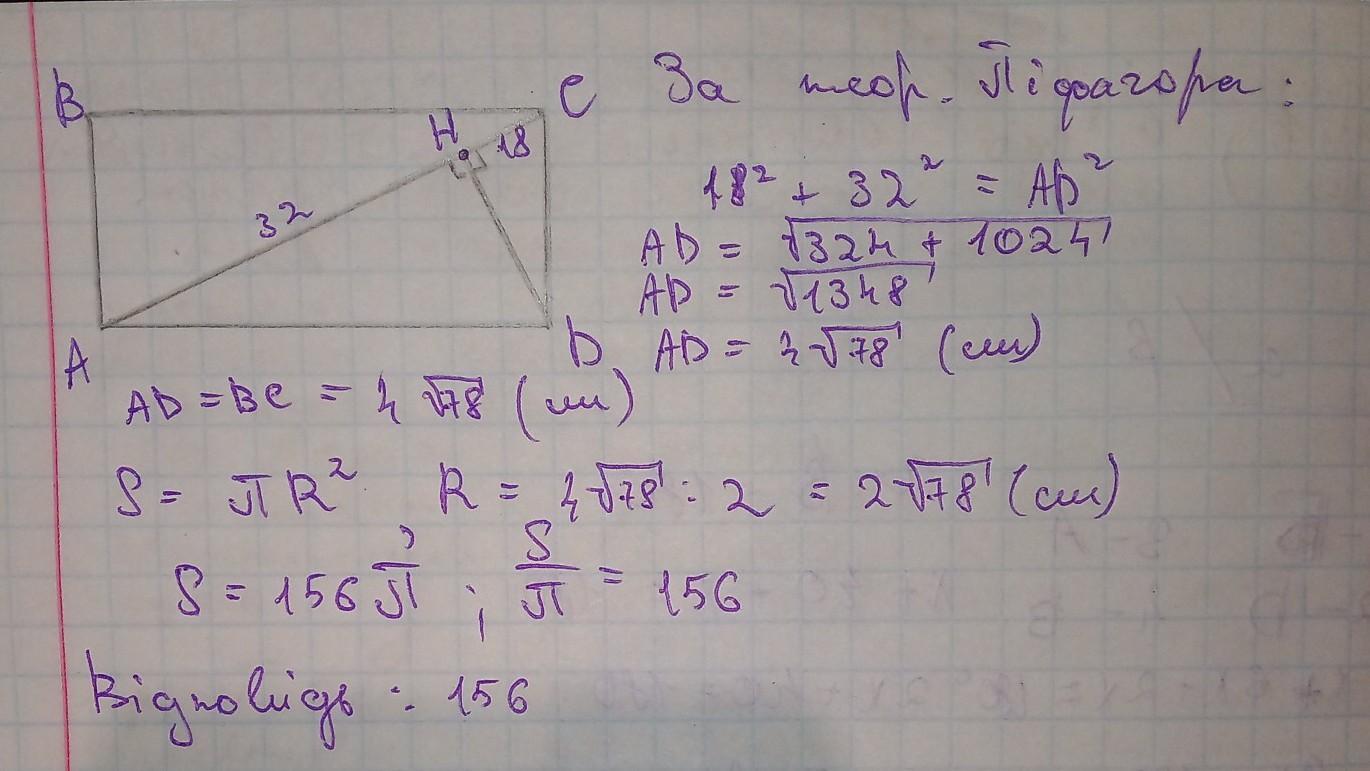 B C За теор. Піфагора:
H 18
32
18² + 32² = AD²
AD = √324 + 1024
AD = √1348
A D AD = 4√78 (см)
AD = BC = 4√78 (см)
S = πR² R = 4√78 : 2 = 2√78 (см)
S = 156π ; S/π = 156
Відповідь : 156